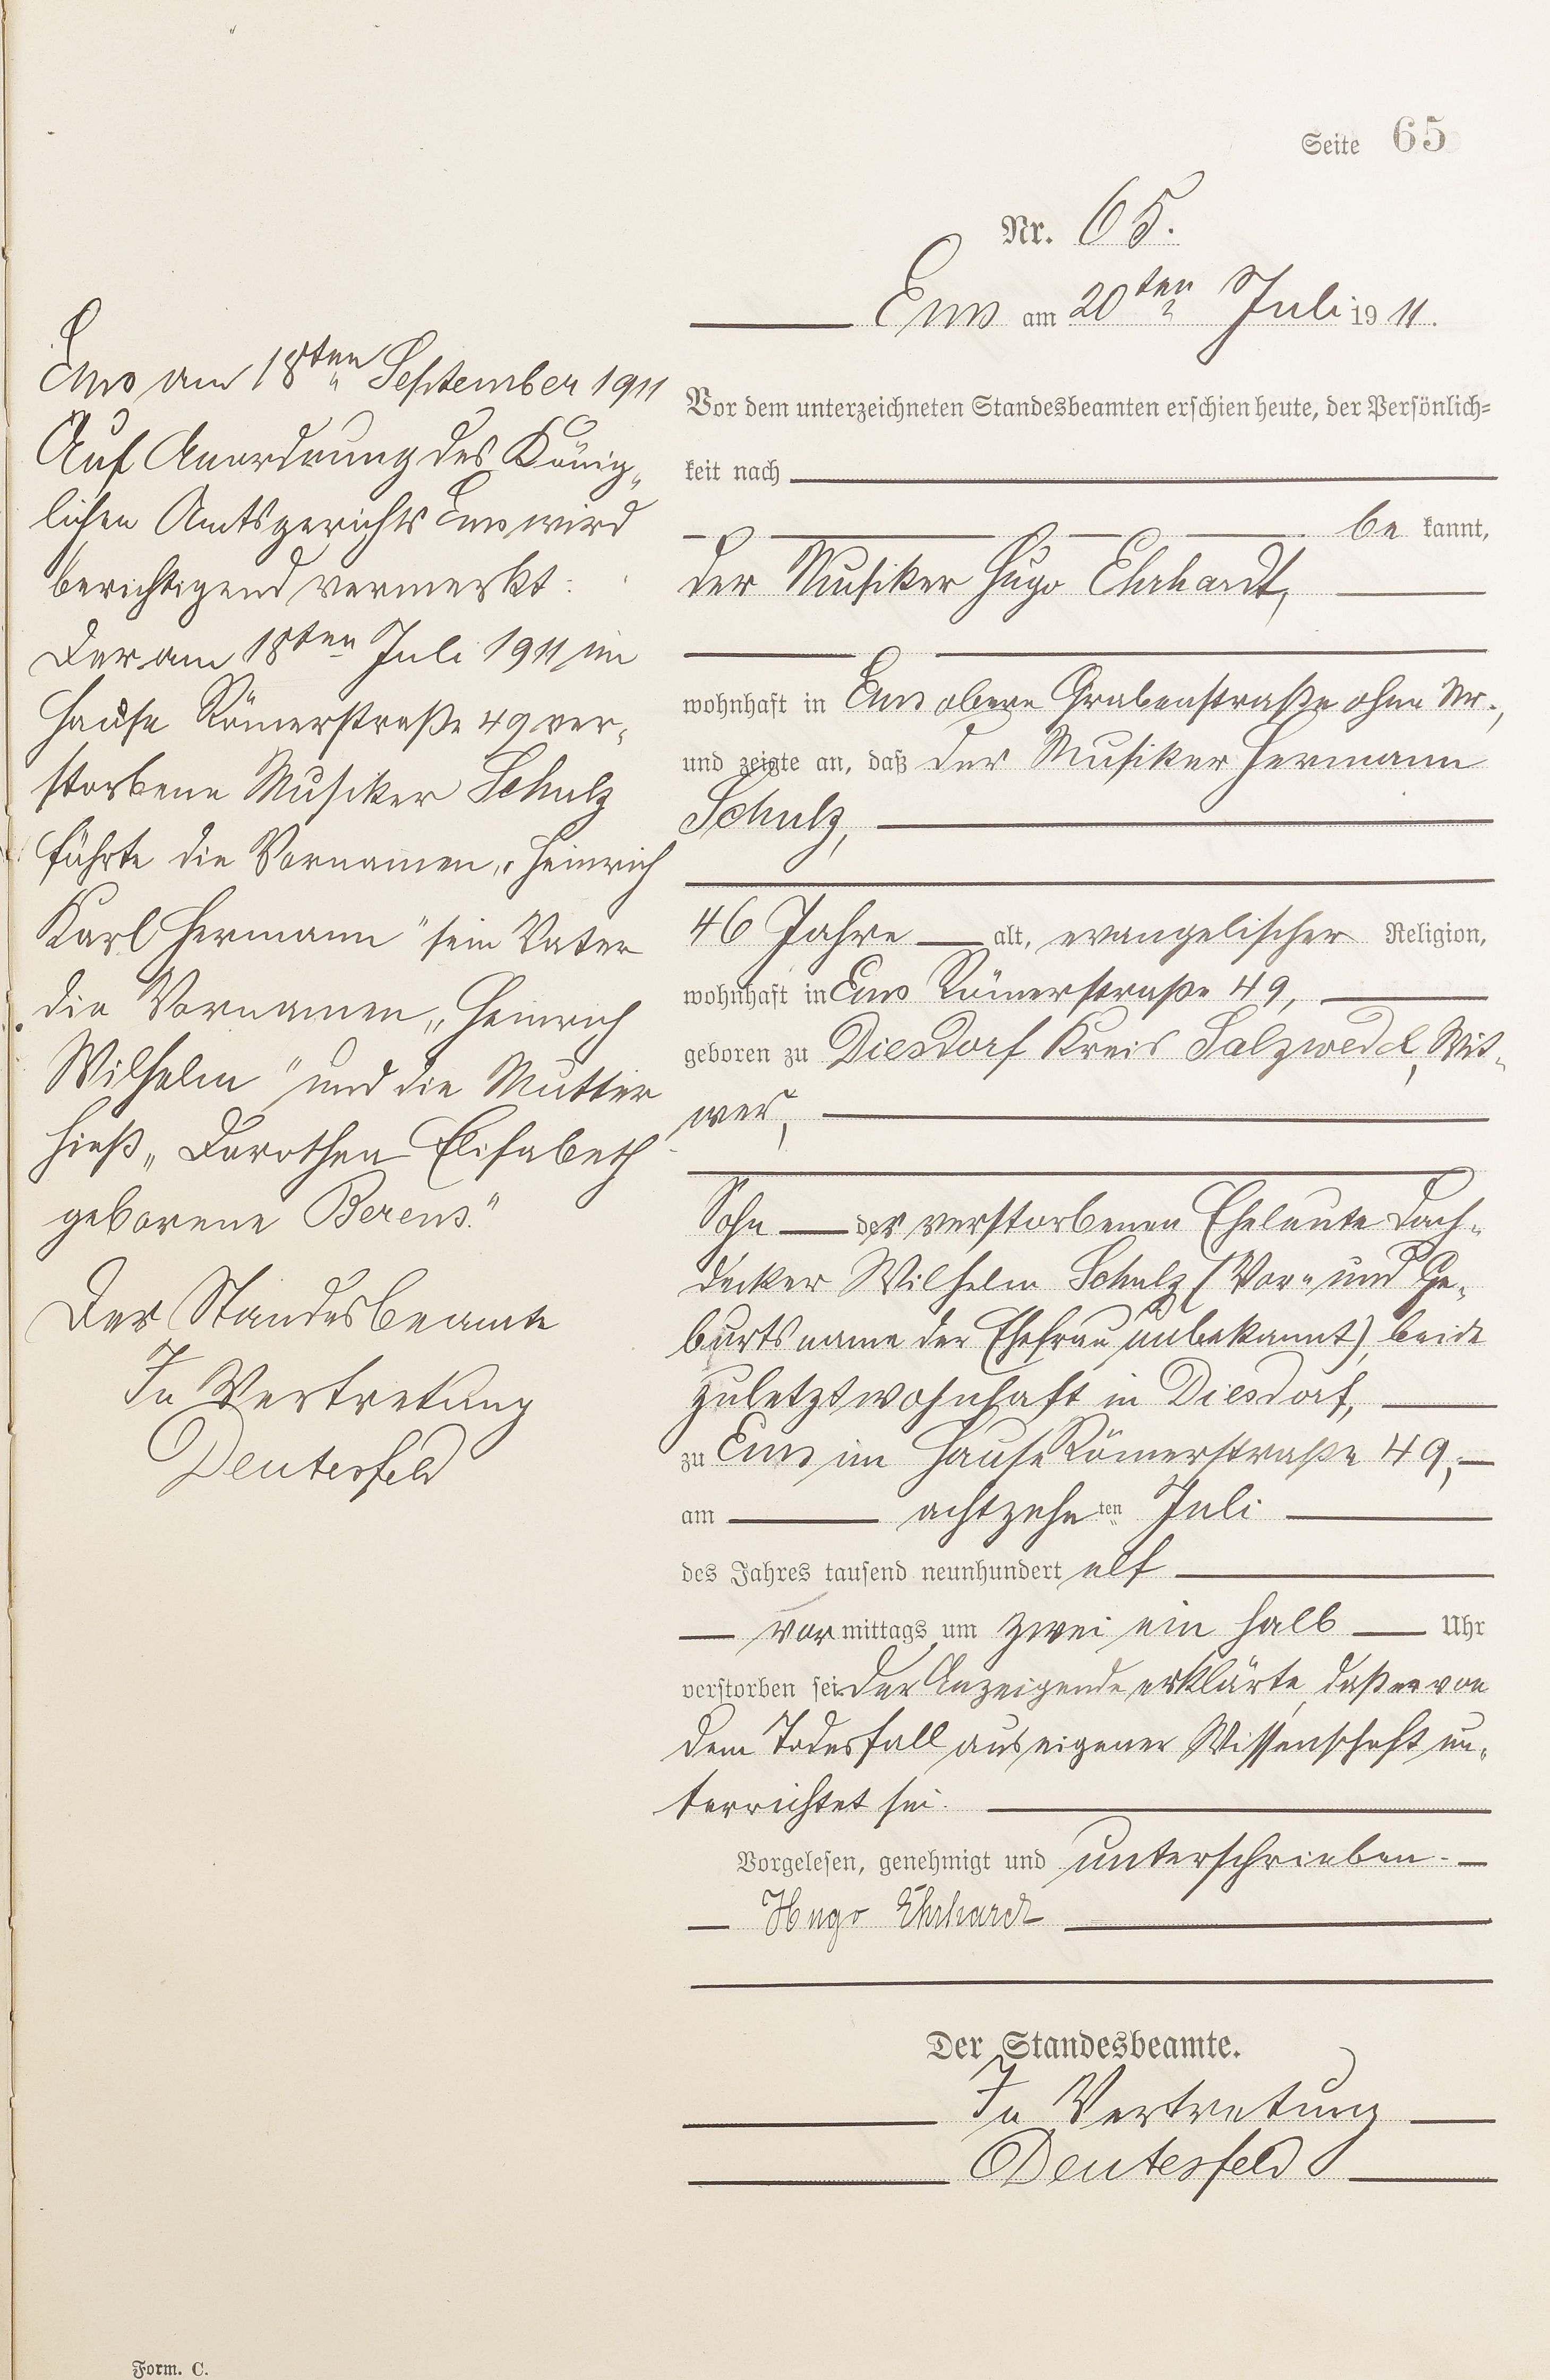 Seite 65
Nr. 65.
Ems am 20ten Juli 1911.
Vor dem unterzeichneten Standesbeamten erschien heute, der Persönlich=
keit nach
be kannt,
der Musiker Hugo Ehrhardt,
wohnhaft in Ems obere Grabenstraße ohne Nr.,
und zeigte an, daß der Musiker Hermann
Schulz,
46 Jahre alt, evangelischer Religion,
wohnhaft in Ems Römerstraße 49,
geboren zu Diesdorf Kreis Salzwedel, Wit-
wer,
Sohn der verstorbenen Eheleute Dach-
decker Wilhelm Schulz (Vor- und Ge-
burtsname der Ehefrau unbekannt), beide
zuletzt wohnhaft in Diesdorf,
zu Ems im Hause Römerstraße 49,
am achtzehnten Juli
des Jahres tausend neunhundert elf
vormittags um zwei ein halb Uhr
verstorben sei. Der Anzeigende erklärte, daß er von
dem Todesfall aus eigener Wissenschaft un-
terrichtet sei.
Vorgelesen, genehmigt und unterschrieben.
Hugo Ehrhardt
Der Standesbeamte.
In Vertretung
Deutesfeld
Ems am 18ten September 1911
Auf Anordnung des König-
lichen Amtsgerichts Ems wird
berichtigend vermerkt:
Der am 18ten Juli 1911 im
Hause Römerstraße 49 ver-
storbene Musiker Schulz
führte die Vornamen „Heinrich
Karl Hermann" sein Vater
die Vornamen „Heinrich
Wilhelm" und die Mutter
hieß „Dorothea Elisabeth
geborene Berens."
Der Standesbeamte
In Vertretung
Deutesfeld
Form. C.